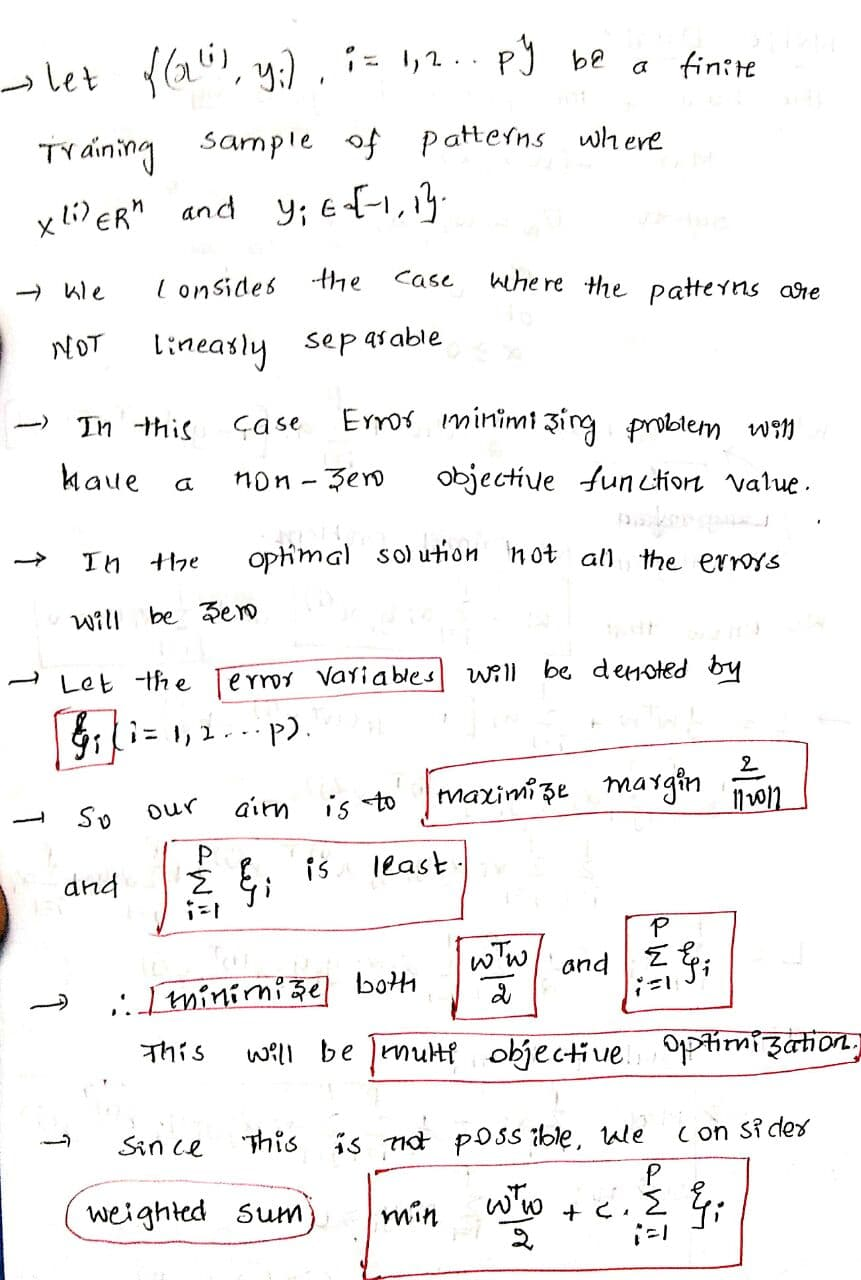 → Let {(x⁽ⁱ⁾, yᵢ), i = 1,2.. p} be a finite
Training sample of patterns where
x⁽ⁱ⁾ ∈ Rⁿ and yᵢ ∈ {-1, 1}.
→ We consider the case where the patterns are
NOT linearly separable
→ In this case Error minimizing problem will
have a non-zero objective function value.
→ In the optimal solution not all the errors
will be zero
→ Let the error variables will be denoted by
ξᵢ (i = 1, 2 ... p).
→ So our aim is to maximize margin 2/||w||
and Σᵢ₌₁ᴾ ξᵢ is least.
→ ∴ minimize both wᵀw/2 and Σᵢ₌₁ᴾ ξᵢ
This will be multi objective Optimization.
→ Since This is not possible, we consider
weighted sum min wᵀw/2 + c. Σᵢ₌₁ᴾ ξᵢ